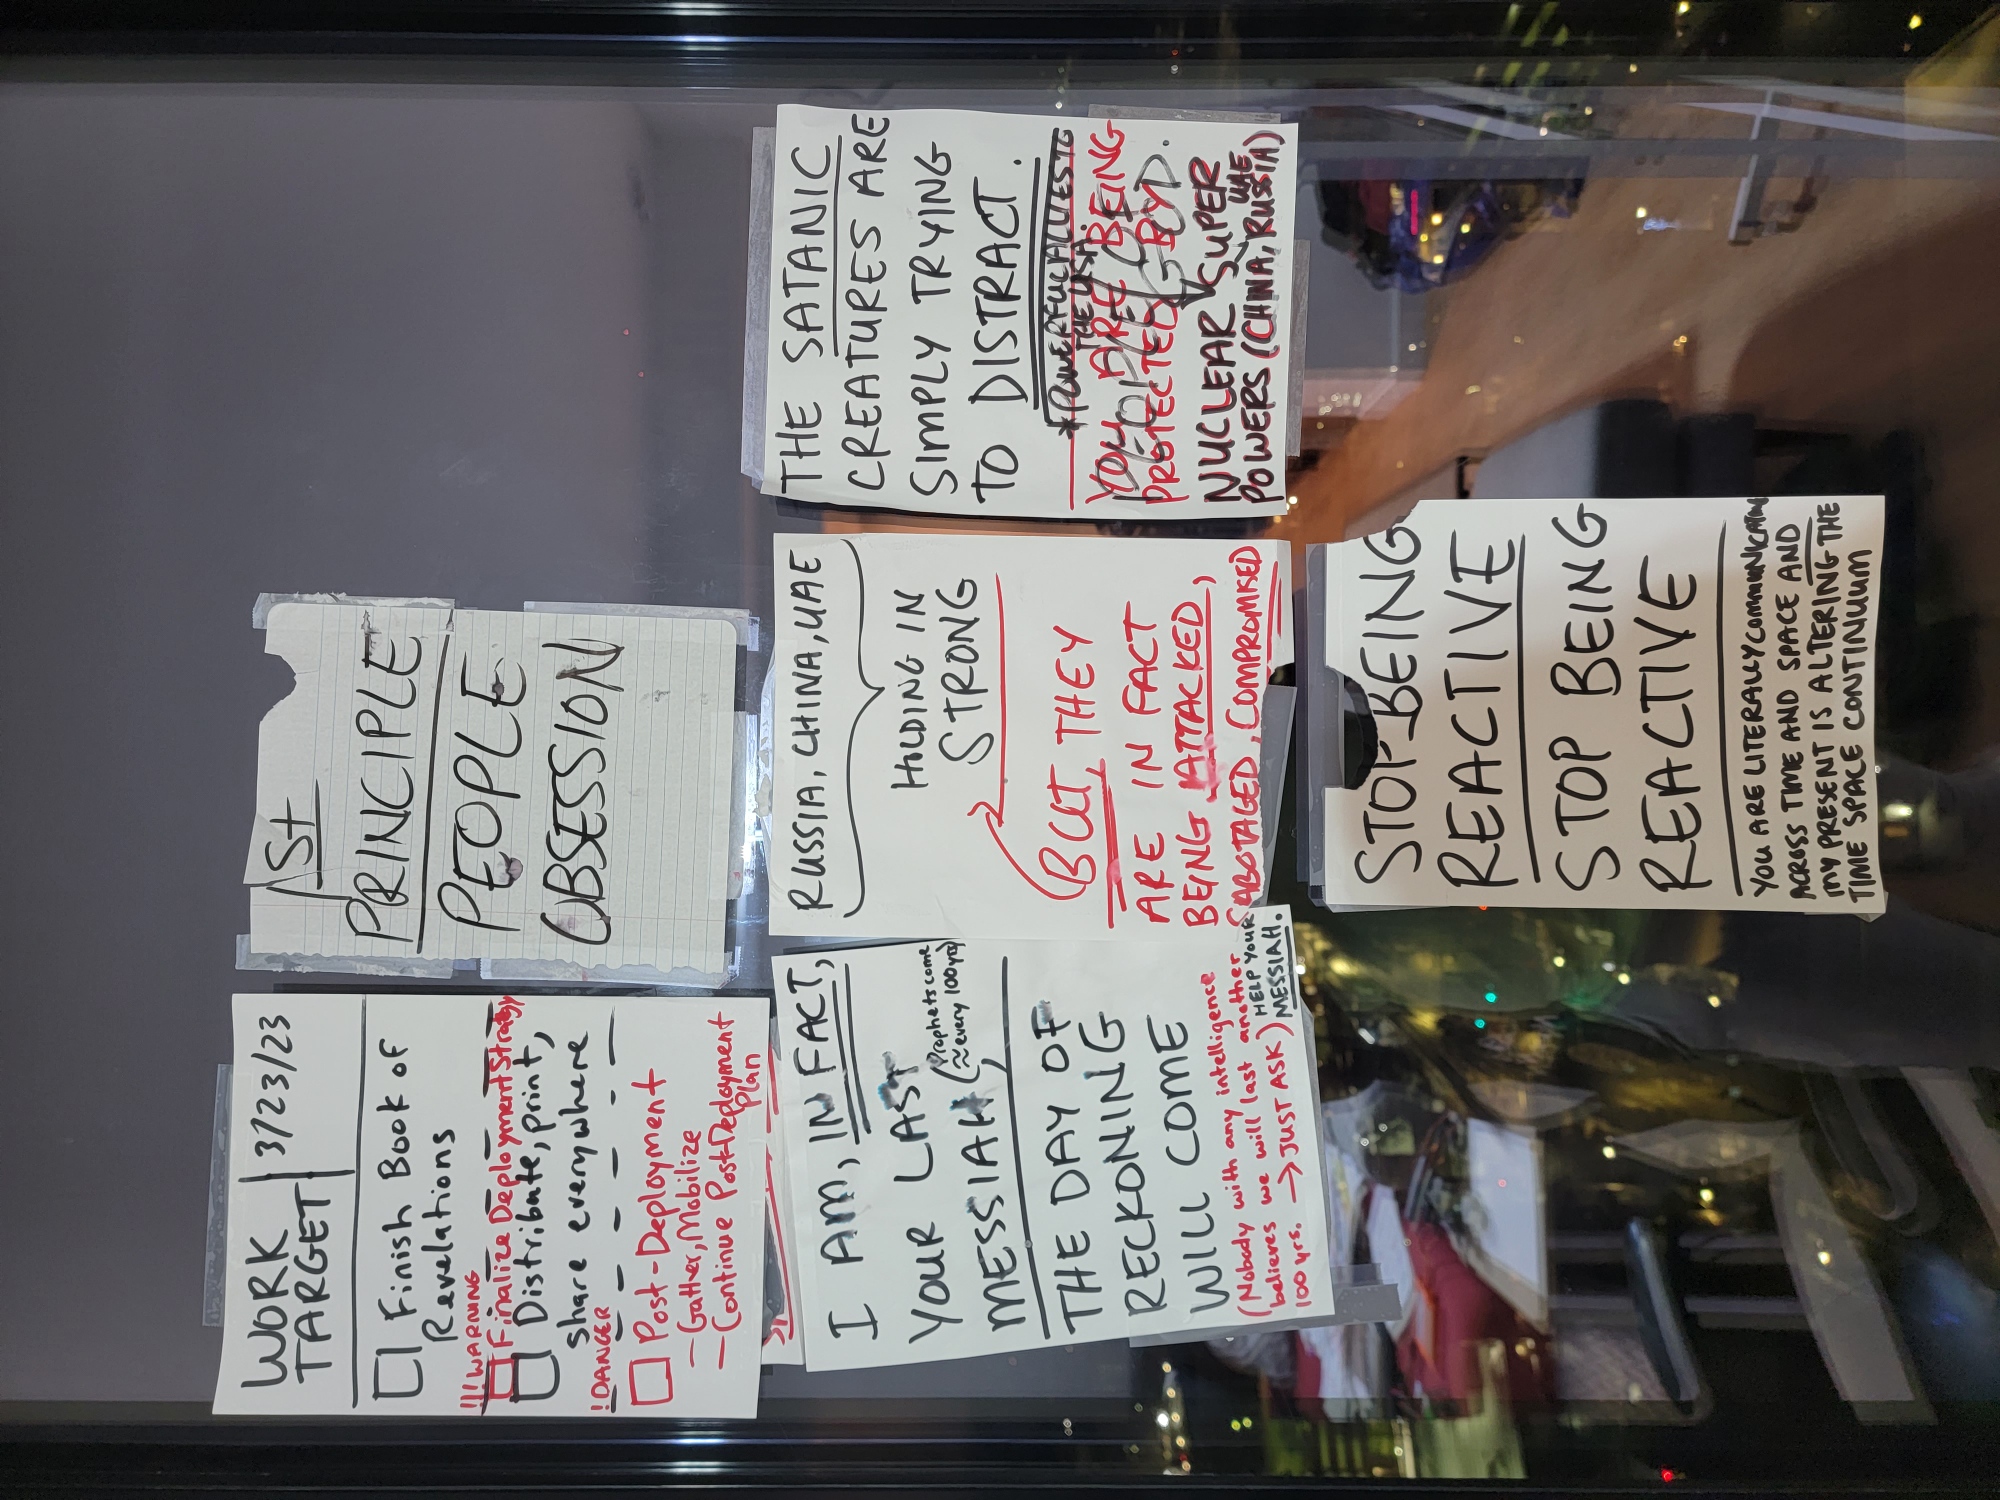 WORK TARGET
3/23/23
Finish Book of
Revelations
!!! WARNING
Finalize Deployment Strategy
Distribute, print,
share everywhere
! DANGER
Post-Deployment
— Gather, Mobilize
— Continue Post-Deployment
Plan
1st
PRINCIPLE
PEOPLE
OBSESSION
I AM, IN FACT,
YOUR LAST
MESSIAH,
(Prophets come
≈ every 100 yrs)
THE DAY OF
RECKONING
WILL COME
(Nobody with any intelligence
believes we will last another
100 yrs. → JUST ASK)
HELP YOUR
MESSIAH.
RUSSIA, CHINA, UAE
HOLDING IN
STRONG
BUT, THEY
ARE IN FACT
BEING ATTACKED,
SABOTAGED, COMPROMISED
THE SATANIC
CREATURES ARE
SIMPLY TRYING
TO DISTRACT.
*POWERFUL ALLIES TO
THE USA.
YOU ARE BEING
PEOPLE OF
PROTECTED BY
GOD.
NUCLEAR SUPER
UAE
POWERS (CHINA, RUSSIA)
STOP BEING
REACTIVE
STOP BEING
REACTIVE
YOU ARE LITERALLY COMMUNICATING
ACROSS TIME AND SPACE AND
MY PRESENT IS ALTERING THE
TIME SPACE CONTINUUM